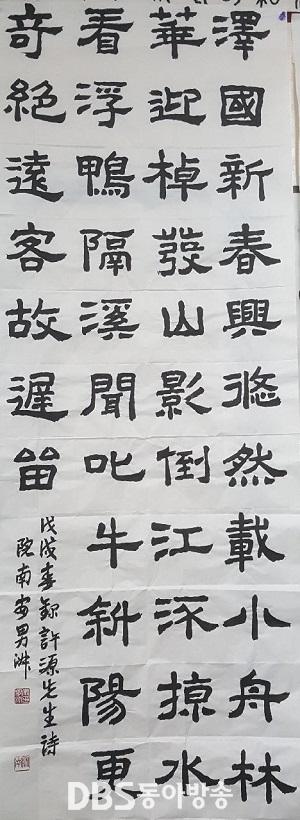 澤國新春興悠然載小舟林
華迎棹發山影倒江流掠水
看浮鴨隔溪聞叱牛斜陽更
奇絕遠客故遲留
戊戌春錄許源先生詩
南安男洙
DBS동아방송